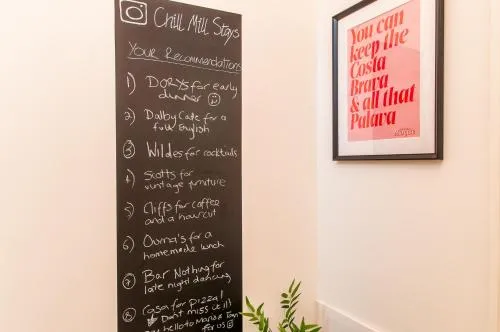 Chill Mill Stays
Your Recommendations
1) DORYs for early
dinner
2) Dalby Cafe for a
full English
3) Wildes for cocktails
4) Scotts for
vintage furniture
5) Cliffs for coffee
and a haircut
6) Ouma's for a
homemade lunch
7) Bar Nothing for
late night dancing
8) Casa for pizza!
Dont miss it!!
hello to Maria & Tom
for us
You can
keep the
Costa
Brava
& all that
Palava